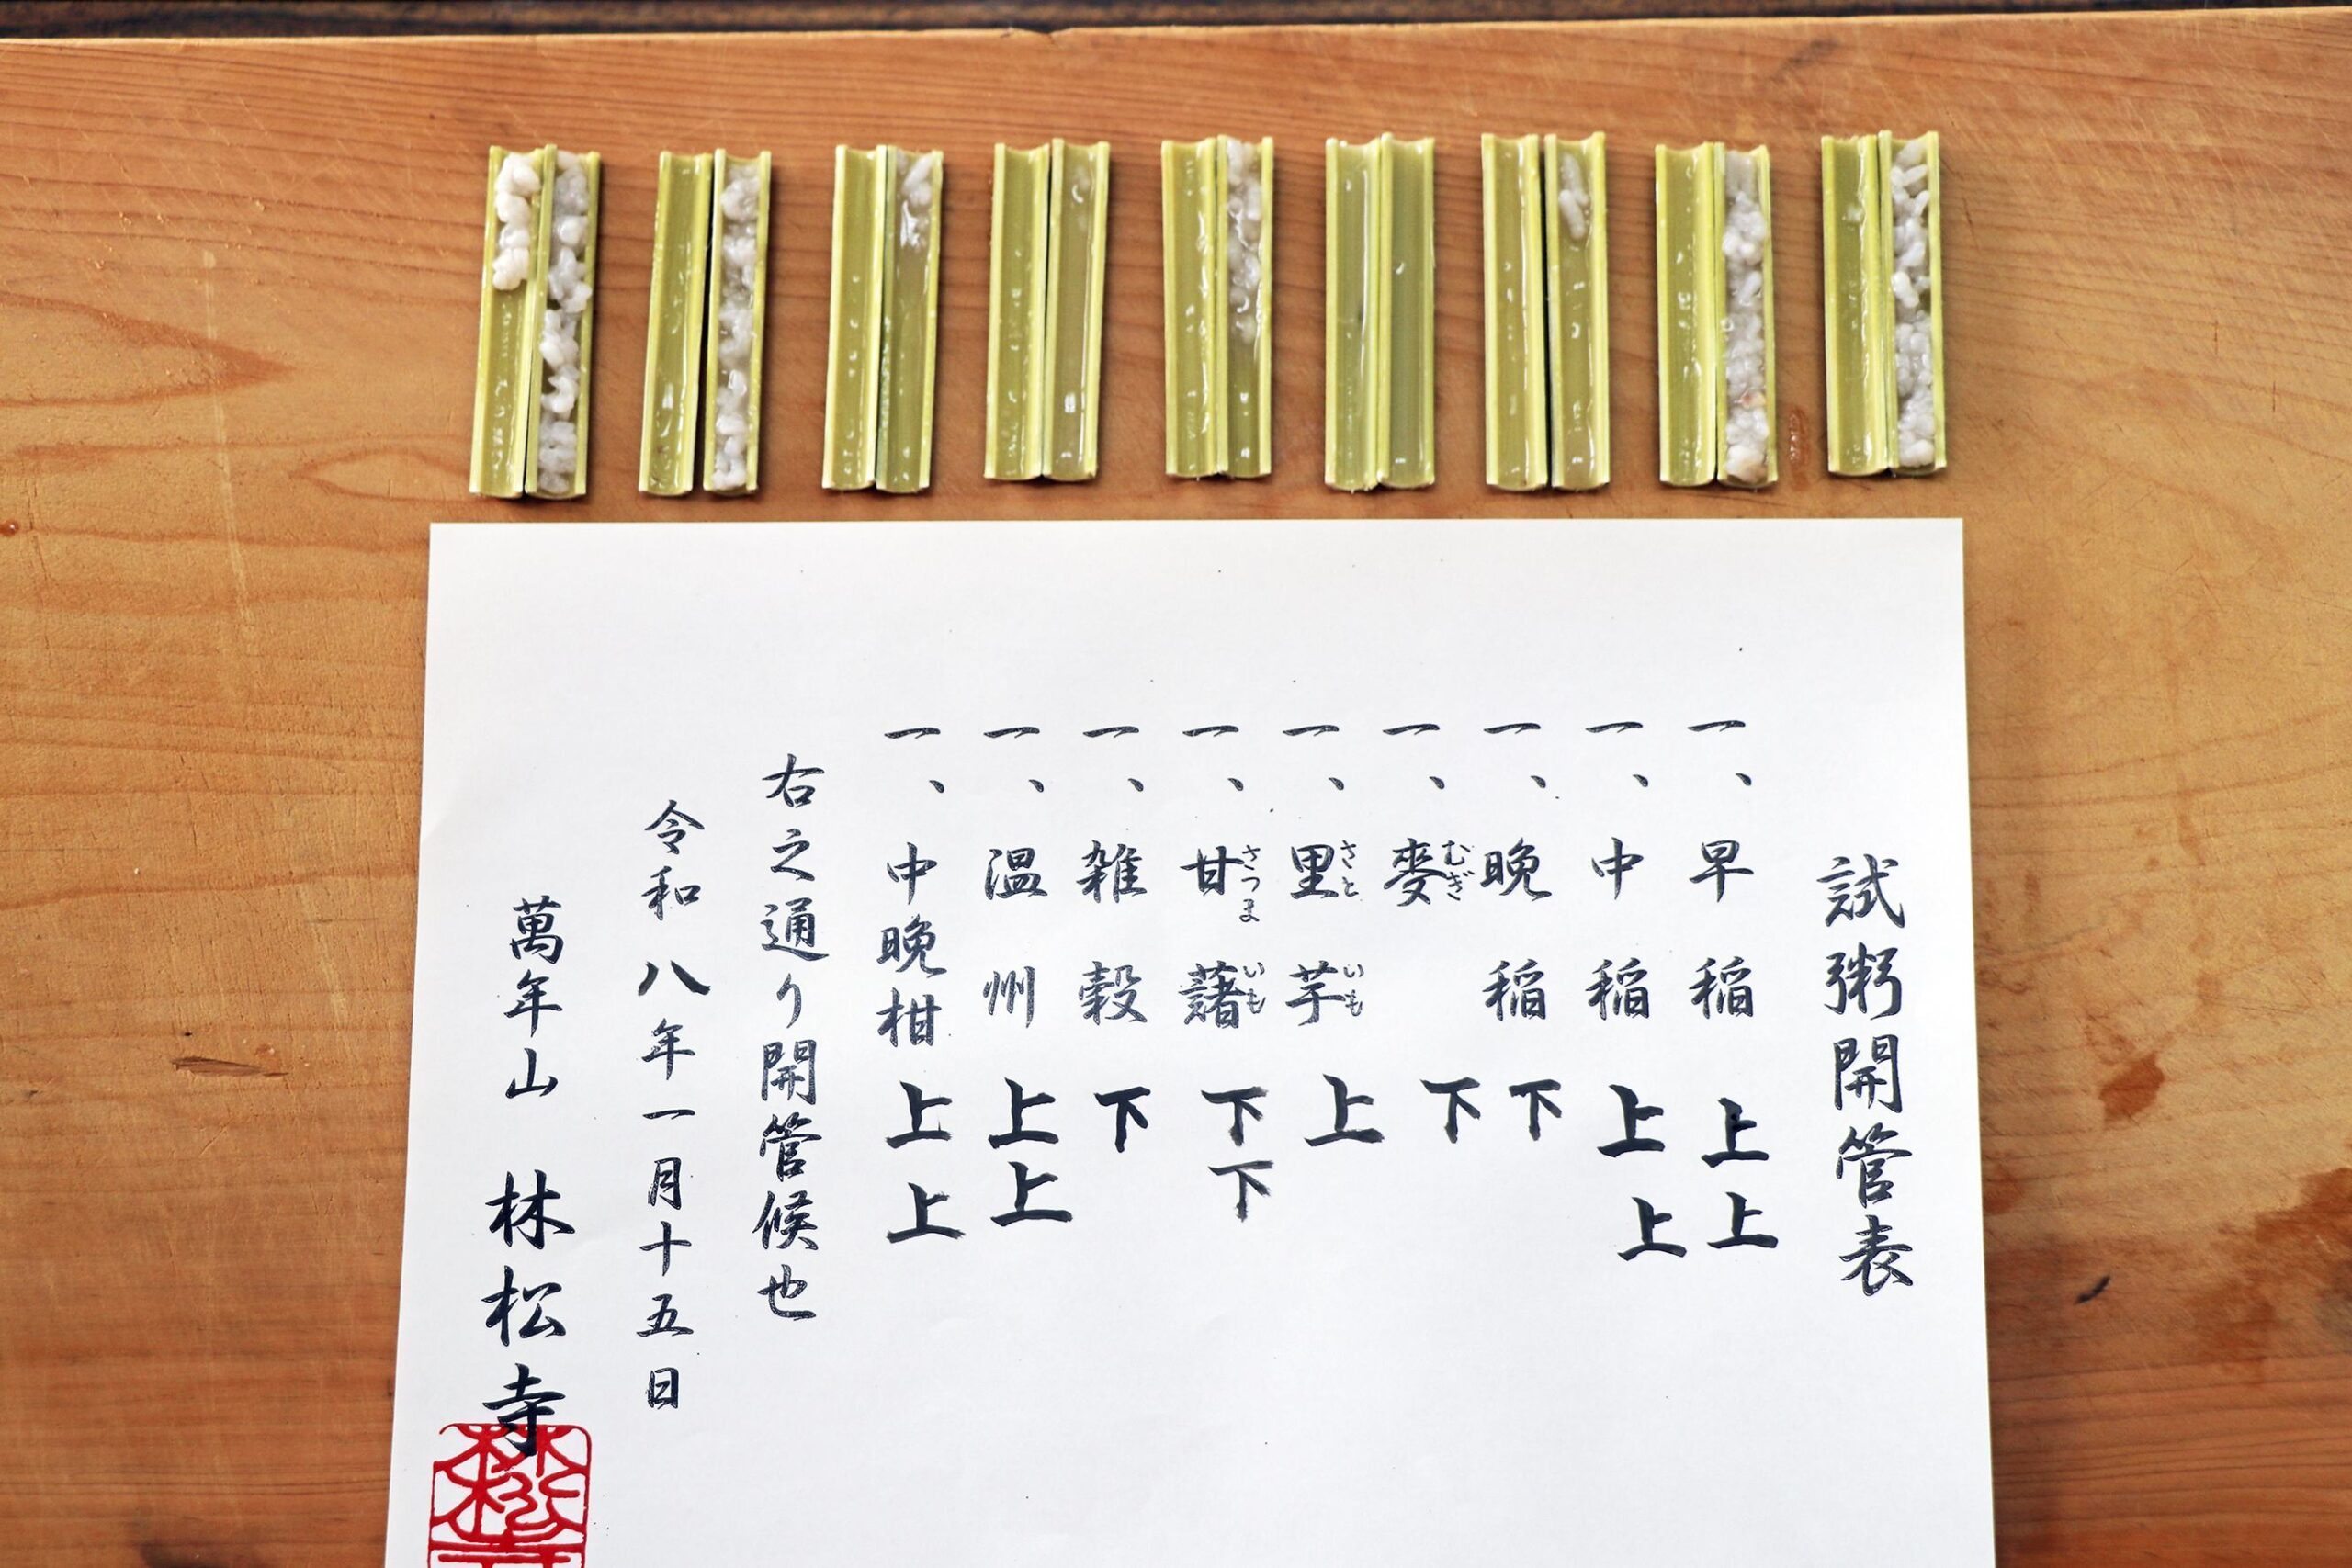 試粥開管表
一、早稲 上上
一、中稲 上上
一、晩稲 下
一、麥 下
むぎ
一、里芋 上
さといも
一、甘藷 下下
さつまいも
一、雑穀 下
一、温州 上上
一、中晩柑 上上
右之通り開管候也
令和八年一月十五日
萬年山 林松寺